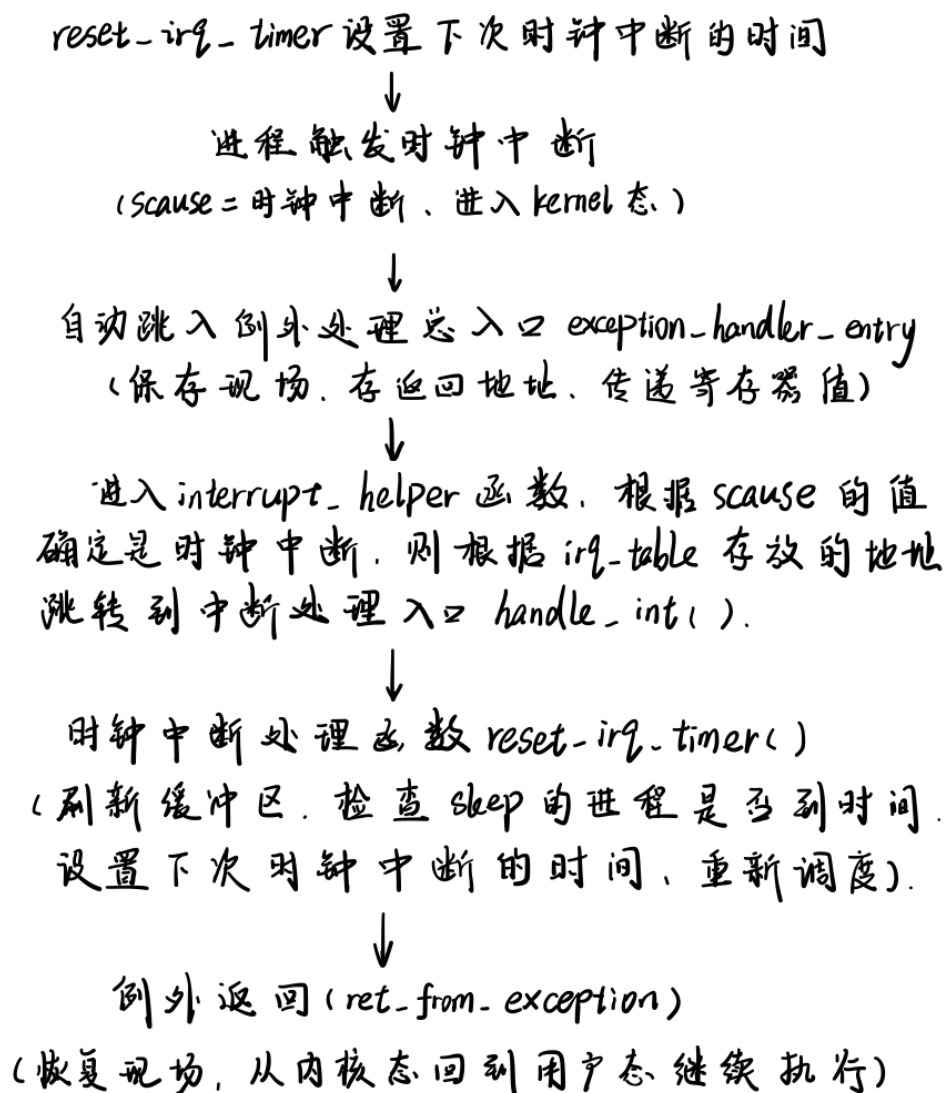 reset_irq_timer 设置下次时钟中断的时间
↓
进程触发时钟中断
(scause = 时钟中断、进入 kernel 态)
↓
自动跳入例外处理总入口 exception_handler_entry
(保存现场、存返回地址、传递寄存器值)
↓
进入 interrupt_helper 函数, 根据 scause 的值
确定是时钟中断, 则根据 irq_table 存放的地址
跳转到中断处理入口 handle_int().
↓
时钟中断处理函数 reset_irq_timer()
(刷新缓冲区. 检查 sleep 的进程是否到时间.
设置下次时钟中断的时间、重新调度).
↓
例外返回 (ret_from_exception)
(恢复现场, 从内核态回到用户态继续执行)